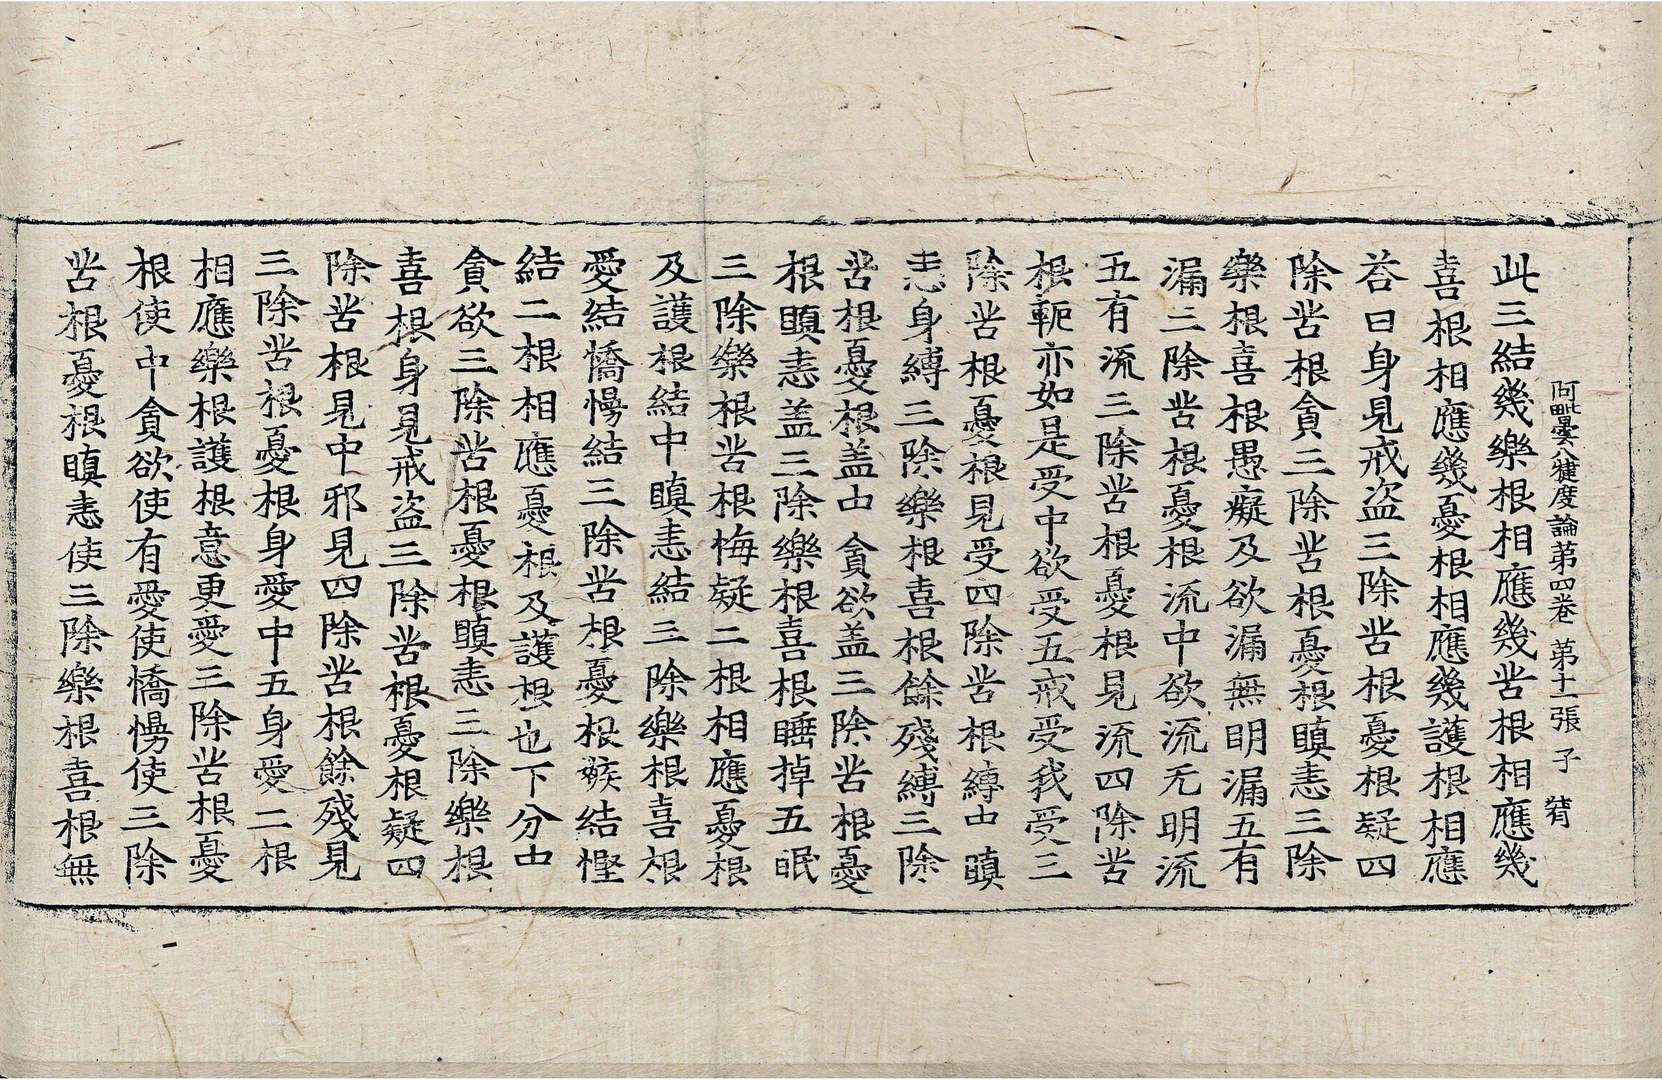 阿毗曇八犍度論第四卷　第十一張　子
此三結幾樂根相應幾苦根相應幾
喜根相應幾憂根相應幾護根相應
荅曰身見戒盗三除苦根憂根疑四
除苦根貪三除苦根憂根瞋恚三除
樂根喜根愚癡及欲漏無明漏五有
漏三除苦根憂根流中欲流无明流
五有流三除苦根憂根見流四除苦
根軛亦如是受中欲受五戒受我受三
除苦根憂根見受四除苦根縛中瞋
恚身縛三除樂根喜根餘殘縛三除
苦根憂根盖中貪欲盖三除苦根憂
根瞋恚盖三除樂根喜根睡掉五眠
三除樂根苦根悔疑二根相應憂根
及護根結中瞋恚結三除樂根喜根
愛結憍慢結三除苦根憂根嫉結慳
結二根相應憂根及護根也下分中
貪欲三除苦根憂根瞋恚三除樂根
喜根身見戒盗三除苦根憂根疑四
除苦根見中邪見四除苦根餘殘見
三除苦根憂根身愛中五身愛二根
相應樂根護根意更愛三除苦根憂
根使中貪欲使有愛使憍慢使三除
苦根憂根瞋恚使三除樂根喜根無